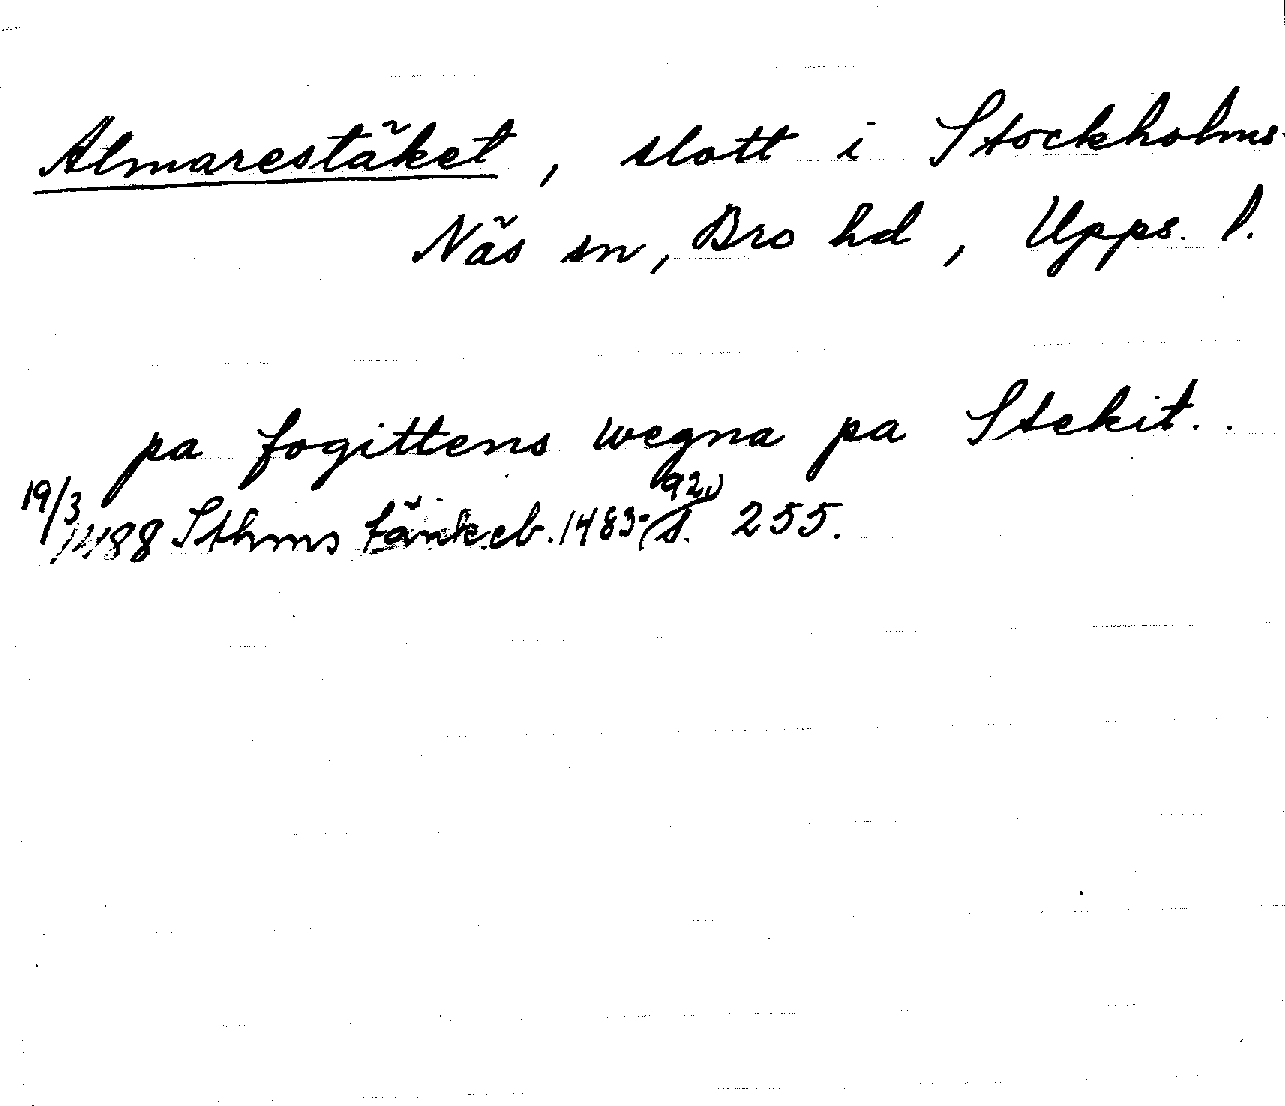 Almarestäket, slott i Stockholms-
Näs sn, Bro hd, Upps. l.
pa fogittens wegna pa Stekit..
19/3 1488 Sthms tänkeb. 1483-92, s. 255.